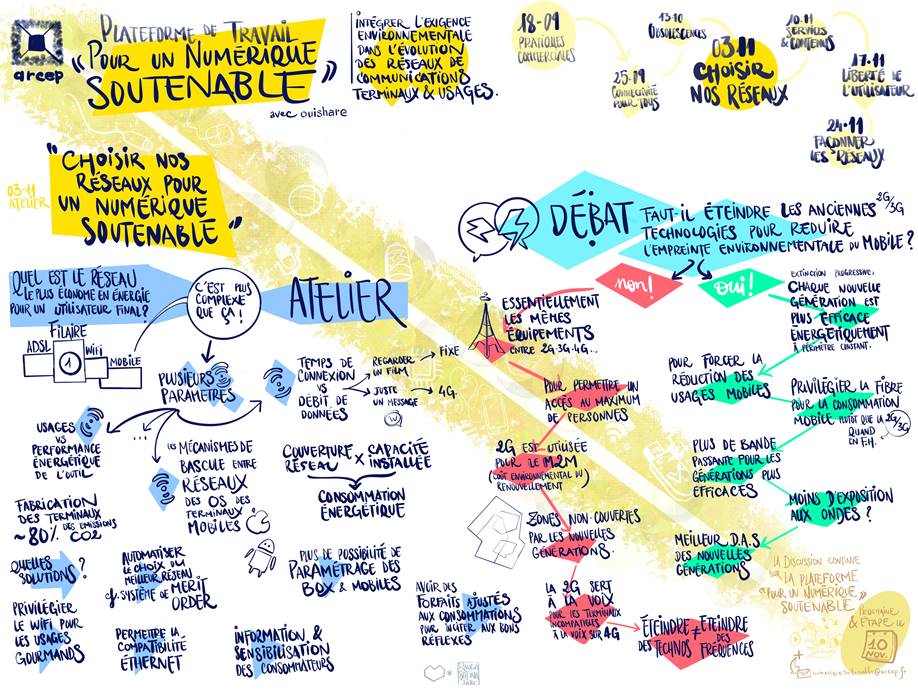 arcep
PLATEFORME DE TRAVAIL
"POUR UN NUMÉRIQUE
SOUTENABLE"
avec ouishare
INTÉGRER L'EXIGENCE
ENVIRONNEMENTALE
DANS L'ÉVOLUTION
DES RÉSEAUX DE
COMMUNICATIONS
TERMINAUX & USAGES.
18-09
PRATIQUES
COMMERCIALES
25-09
CONNECTIVITÉ
POUR TOUS
13-10
OBSOLESCENCES
03.11
CHOISIR
NOS RÉSEAUX
10.11
SERVICES
& CONTENUS
17-11
LIBERTÉ DE
L'UTILISATEUR
24-11
FAÇONNER
LES RÉSEAUX
03-11
ATELIER
"CHOISIR NOS
RÉSEAUX POUR
UN NUMÉRIQUE
SOUTENABLE"
QUEL EST LE RÉSEAU
LE PLUS ÉCONOME EN ÉNERGIE
POUR UN UTILISATEUR FINAL?
C'EST PLUS
COMPLEXE
QUE ÇA!
ATELIER
FILAIRE
ADSL
1
WIFI
MOBILE
PLUSIEURS
PARAMÈTRES
TEMPS DE
CONNEXION
VS
DÉBIT DE
DONNÉES
REGARDER
UN FILM
FIXE
JUSTE
UN MESSAGE
4G
USAGES
VS
PERFORMANCE
ÉNERGÉTIQUE
DE L'OUTIL
...
LES MÉCANISMES DE
BASCULE ENTRE
RÉSEAUX
DES OS DES
TERMINAUX
MOBILES
COUVERTURE
RÉSEAU
X
CAPACITÉ
INSTALLÉE
CONSOMMATION
ÉNERGÉTIQUE
FABRICATION
DES TERMINAUX
~80% DES EMISSIONS
CO2
QUELLES
SOLUTIONS?
AUTOMATISER
LE CHOIX DU
MEILLEUR RÉSEAU
cf. SYSTÈME DE MERIT
ORDER
PLUS DE POSSIBILITÉ DE
PARAMÉTRAGE DES
BOX & MOBILES
PRIVILÉGIER
LE WIFI POUR
LES USAGES
GOURMANDS
PERMETTRE LA
COMPATIBILITÉ
ÉTHERNET
INFORMATION &
SENSIBILISATION
DES CONSOMMATEURS
AVOIR DES
FORFAITS AJUSTÉS
AUX CONSOMMATIONS
POUR INCITER AUX BONS
RÉFLEXES
DÉBAT
FAUT-IL ÉTEINDRE LES ANCIENNES 2G/3G
TECHNOLOGIES POUR RÉDUIRE
L'EMPREINTE ENVIRONNEMENTALE DU MOBILE?
non!
oui!
ESSENTIELLEMENT
LES MÊMES
ÉQUIPEMENTS
ENTRE 2G.3G.4G...
POUR PERMETTRE UN
ACCÈS AU MAXIMUM
DE PERSONNES
2G EST UTILISÉE
POUR LE M2M
(COÛT ENVIRONNEMENTAL DU
RENOUVELLEMENT)
ZONES NON-COUVERTES
PAR LES NOUVELLES
GÉNÉRATIONS.
LA 2G SERT
À LA VOIX
POUR LES TERMINAUX
INCOMPATIBLES
À LA VOIX SUR 4G
ÉTEINDRE
DES TECHNOS
≠
ÉTEINDRE
DES
FRÉQUENCES
EXTINCTION PROGRESSIVE:
CHAQUE NOUVELLE
GÉNÉRATION EST
PLUS EFFICACE
ÉNERGÉTIQUEMENT
À PÉRIMÈTRE CONSTANT.
POUR FORCER LA
RÉDUCTION DES
USAGES MOBILES
PRIVILÉGIER LA FIBRE
POUR LA CONSOMMATION
MOBILE PLUTÔT QUE LA 2G/3G
QUAND
PLUS DE BANDE
PASSANTE POUR LES
GÉNÉRATIONS PLUS
EFFICACES
MOINS D'EXPOSITION
AUX ONDES?
MEILLEUR D.A.S
DES NOUVELLES
GÉNÉRATIONS
LA DISCUSSION CONTINUE
SUR LA PLATEFORME
"POUR UN NUMÉRIQUE
SOUTENABLE"
PROCHAINE
ÉTAPE LE
10
NOV.